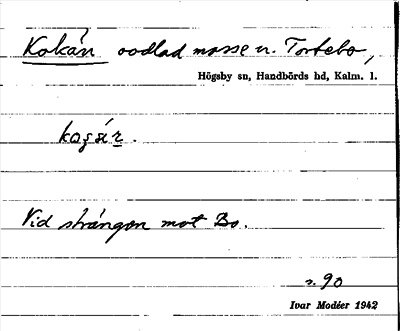 Kokån oodlad mosse u. Tortebo,
Högsby sn, Handbörds hd, Kalm. l.
Vid strängen mot Bo.
s. 90
Ivar Modéer 1942